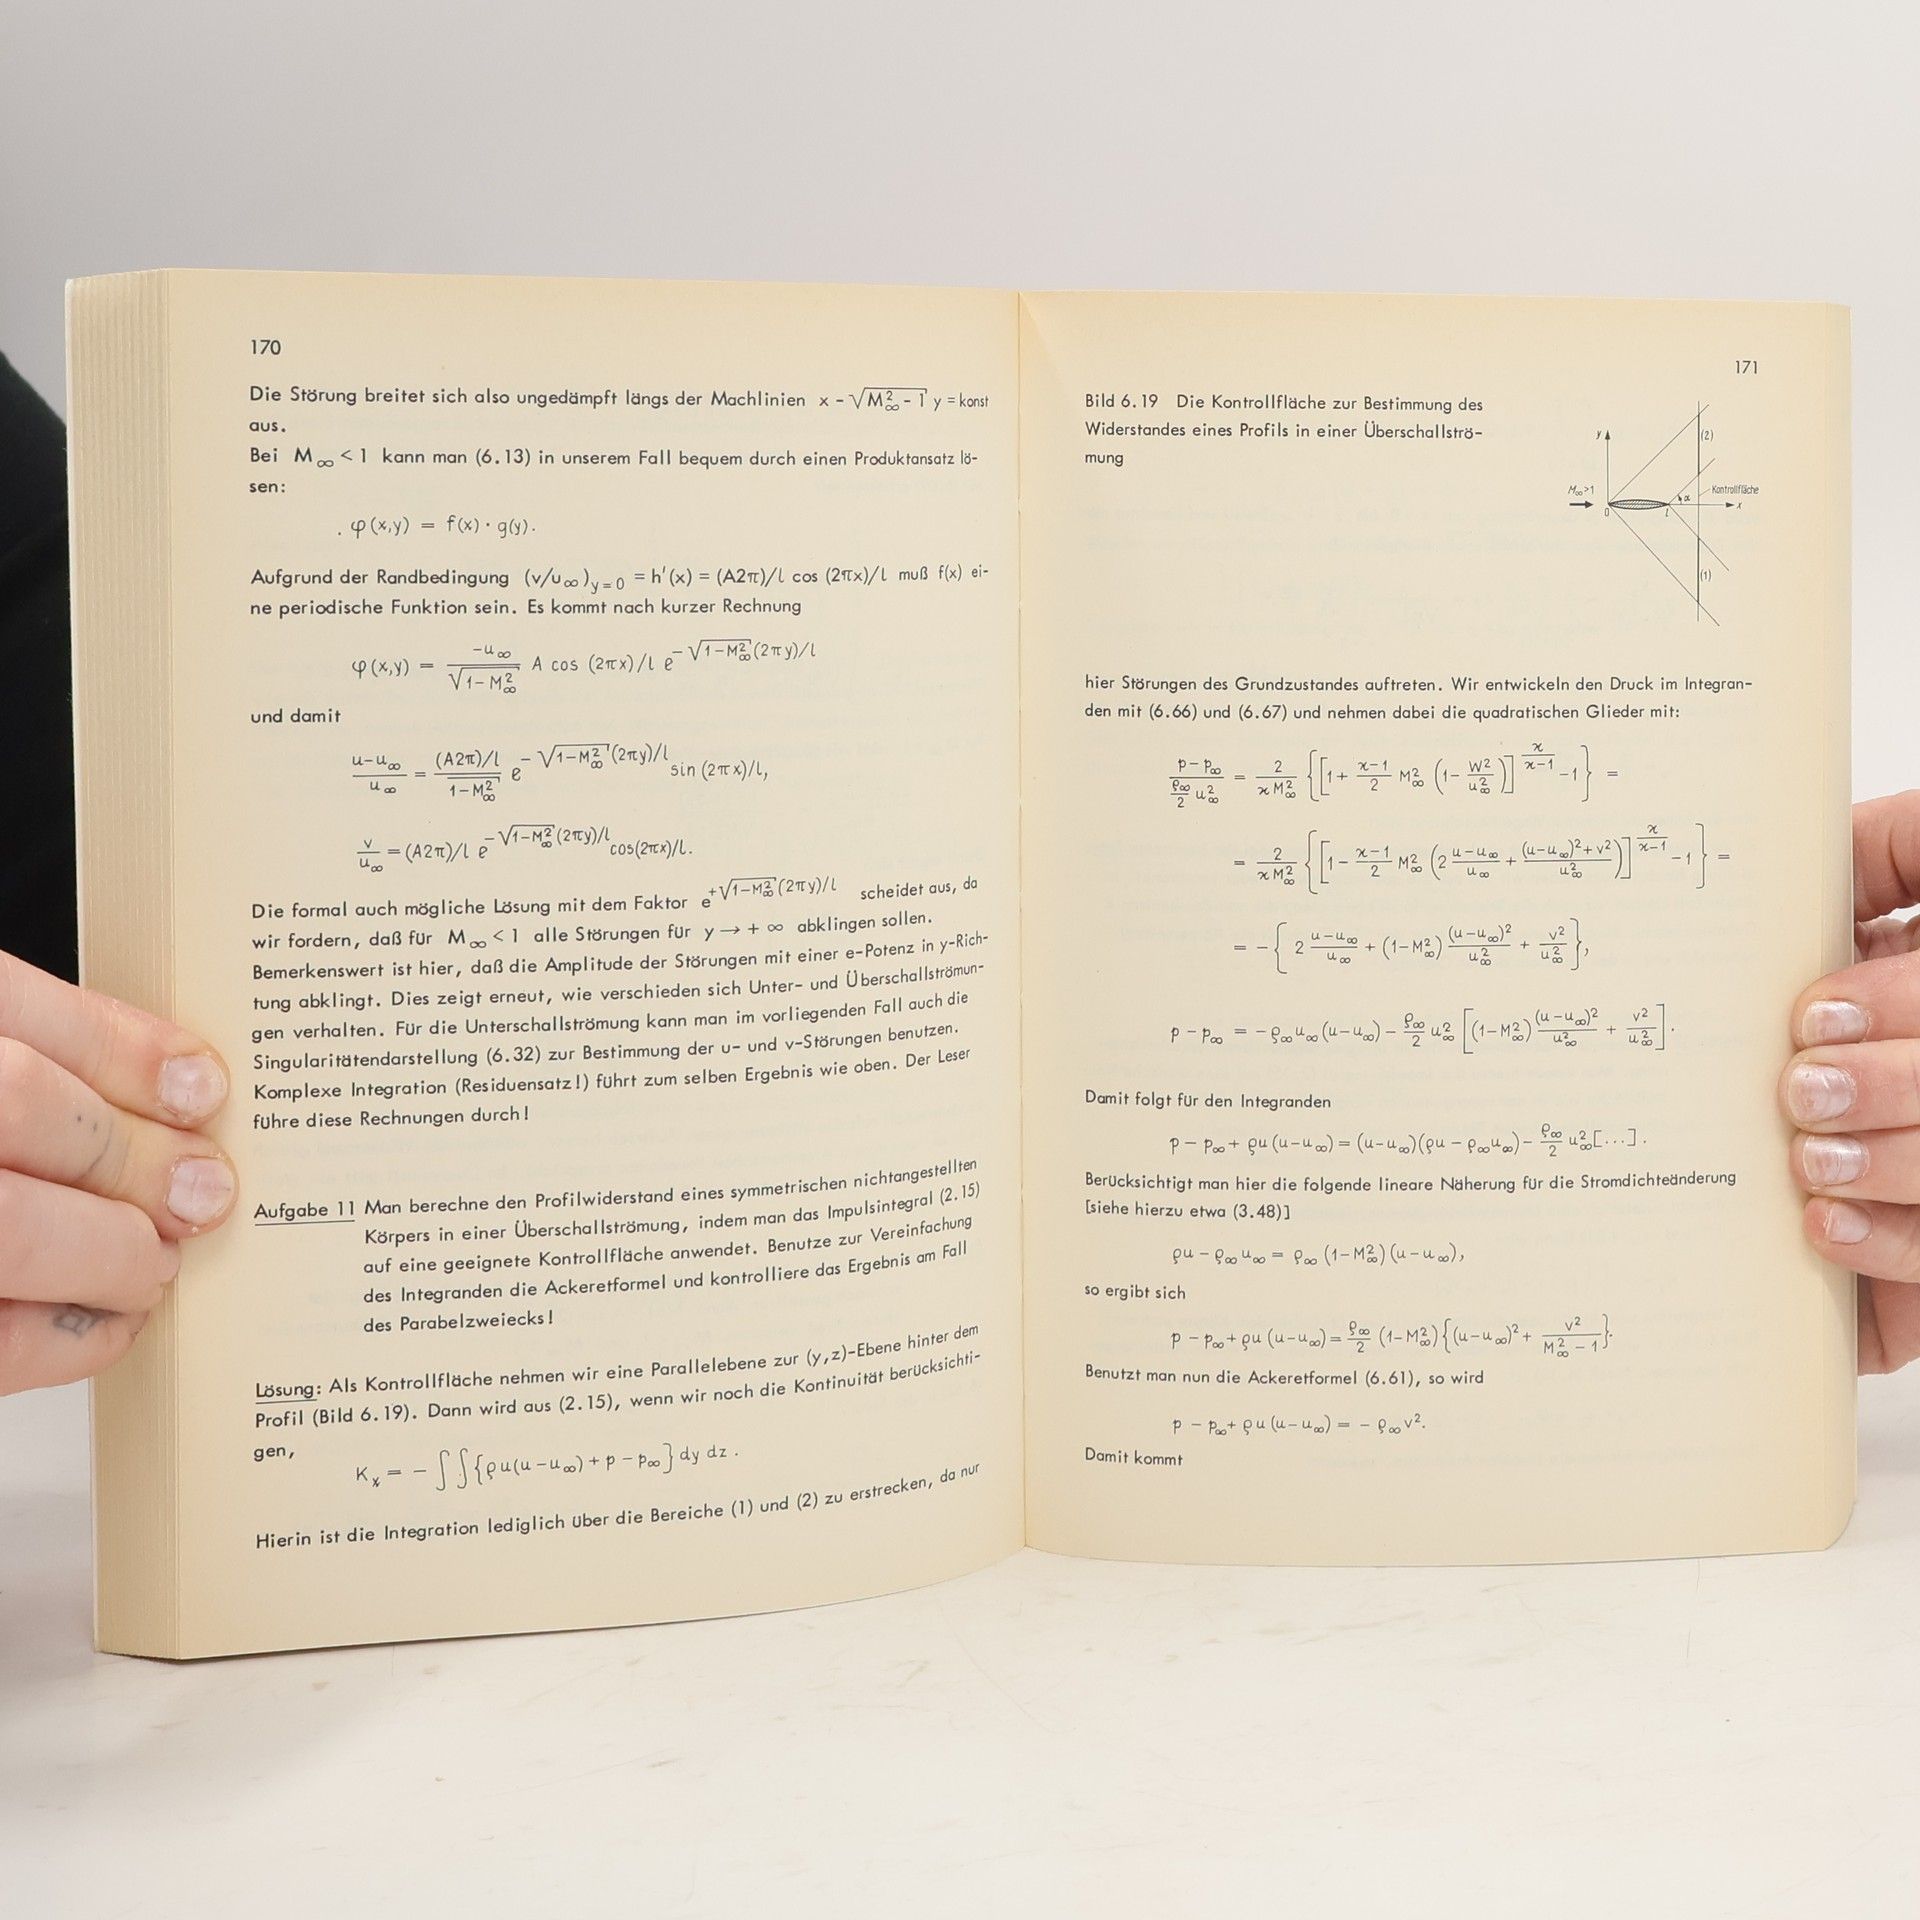 170
Die Störung breitet sich also ungedämpft längs der Machlinien x - √(M²∞ - 1) y = konst
aus.
Bei M∞ < 1 kann man (6.13) in unserem Fall bequem durch einen Produktansatz lö-
sen:
φ(x,y) = f(x) · g(y).
Aufgrund der Randbedingung (v/u∞)y=0 = h'(x) = (A2π)/l cos (2πx)/l muß f(x) ei-
ne periodische Funktion sein. Es kommt nach kurzer Rechnung
φ(x,y) = -u∞/√(1-M²∞) A cos (2πx)/l e^(-√(1-M²∞)(2πy)/l)
und damit
(u-u∞)/u∞ = ((A2π)/l)/√(1-M²∞) e^(-√(1-M²∞)(2πy)/l) sin (2πx)/l,
v/u∞ = (A2π)/l e^(-√(1-M²∞)(2πy)/l) cos(2πx)/l.
Die formal auch mögliche Lösung mit dem Faktor e^(+√(1-M²∞)(2πy)/l) scheidet aus, da
wir fordern, daß für M∞ < 1 alle Störungen für y → + ∞ abklingen sollen.
Bemerkenswert ist hier, daß die Amplitude der Störungen mit einer e-Potenz in y-Rich-
tung abklingt. Dies zeigt erneut, wie verschieden sich Unter- und Überschallströmun-
gen verhalten. Für die Unterschallströmung kann man im vorliegenden Fall auch die
Singularitätendarstellung (6.32) zur Bestimmung der u- und v-Störungen benutzen.
Komplexe Integration (Residuensatz!) führt zum selben Ergebnis wie oben. Der Leser
führe diese Rechnungen durch!
Aufgabe 11 Man berechne den Profilwiderstand eines symmetrischen nichtangestellten
Körpers in einer Überschallströmung, indem man das Impulsintegral (2.15)
auf eine geeignete Kontrollfläche anwendet. Benutze zur Vereinfachung
des Integranden die Ackeretformel und kontrolliere das Ergebnis am Fall
des Parabelzweiecks!
Lösung: Als Kontrollfläche nehmen wir eine Parallelebene zur (y,z)-Ebene hinter dem
Profil (Bild 6.19). Dann wird aus (2.15), wenn wir noch die Kontinuität berücksichti-
gen,
Kx = - ∫∫{ϱu(u-u∞) + p - p∞} dy dz.
Hierin ist die Integration lediglich über die Bereiche (1) und (2) zu erstrecken, da nur
171
Bild 6.19 Die Kontrollfläche zur Bestimmung des
Widerstandes eines Profils in einer Überschallströ-
mung
y
(2)
M∞>1
α
Kontrollfläche
0
l
x
(1)
hier Störungen des Grundzustandes auftreten. Wir entwickeln den Druck im Integran-
den mit (6.66) und (6.67) und nehmen dabei die quadratischen Glieder mit:
(p-p∞)/((ϱ∞/2) u²∞) = 2/(ϰM²∞) {[1 + (ϰ-1)/2 M²∞ (1 - W²/u²∞)]^(ϰ/(ϰ-1) ) - 1} =
= 2/(ϰM²∞) {[1 - (ϰ-1)/2 M²∞ (2 (u-u∞)/u∞ + ((u-u∞)²+v²)/u²∞)]^(ϰ/(ϰ-1)) - 1} =
= -{2 (u-u∞)/u∞ + (1-M²∞) (u-u∞)²/u²∞ + v²/u²∞},
p - p∞ = -ϱ∞u∞(u-u∞) - ϱ∞/2 u²∞ [(1-M²∞) (u-u∞)²/u²∞ + v²/u²∞].
Damit folgt für den Integranden
p - p∞ + ϱu(u-u∞) = (u-u∞)(ϱu - ϱ∞u∞) - ϱ∞/2 u²∞[...].
Berücksichtigt man hier die folgende lineare Näherung für die Stromdichteänderung
[siehe hierzu etwa (3.48)]
ϱu - ϱ∞u∞ = ϱ∞ (1-M²∞)(u-u∞),
so ergibt sich
p - p∞ + ϱu (u-u∞) = ϱ∞/2 (1-M²∞){(u-u∞)² + v²/(M²∞ - 1)}.
Benutzt man nun die Ackeretformel (6.61), so wird
p - p∞ + ϱu (u-u∞) = - ϱ∞v².
Damit kommt